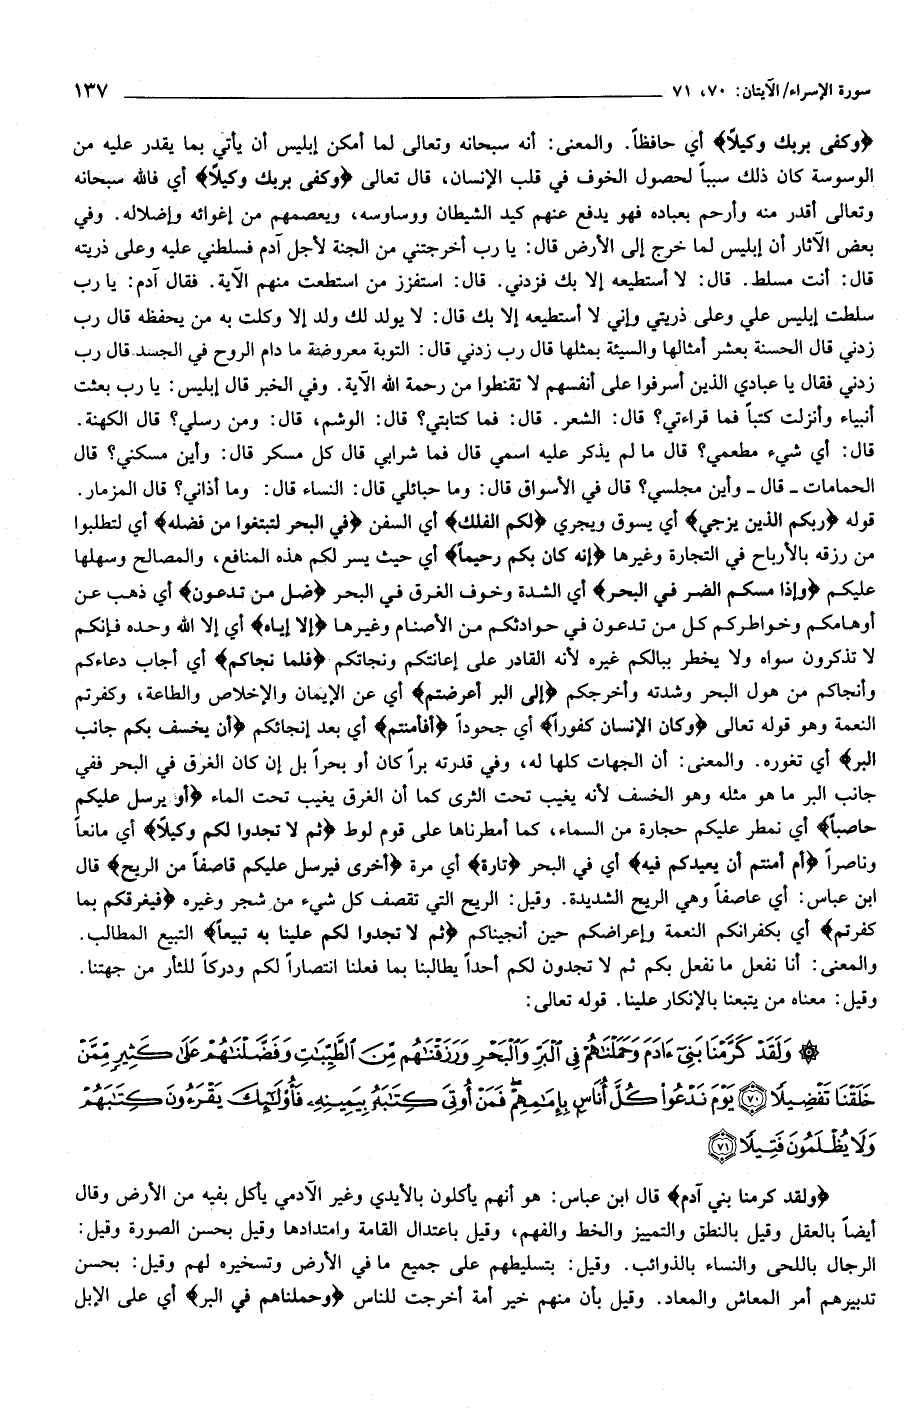 سورة الإسراء/ الآيتان: ٧٠، ٧١ ١٣٧
﴿وكفى بربك وكيلاً﴾ أي حافظاً. والمعنى: أنه سبحانه وتعالى لما أمكن إبليس أن يأتي بما يقدر عليه من
الوسوسة كان ذلك سبباً لحصول الخوف في قلب الإنسان، قال تعالى ﴿وكفى بربك وكيلاً﴾ أي فالله سبحانه
وتعالى أقدر منه وأرحم بعباده فهو يدفع عنهم كيد الشيطان ووساوسه، ويعصمهم من إغوائه وإضلاله. وفي
بعض الآثار أن إبليس لما خرج إلى الأرض قال: يا رب أخرجتني من الجنة لأجل آدم فسلطني عليه وعلى ذريته
قال: أنت مسلط. قال: لا أستطيعه إلا بك فزدني. قال: استفزز من استطعت منهم الآية. فقال آدم: يا رب
سلطت إبليس علي وعلى ذريتي وإني لا أستطيعه إلا بك قال: لا يولد لك ولد إلا وكلت به من يحفظه قال رب
زدني قال الحسنة بعشر أمثالها والسيئة بمثلها قال رب زدني قال: التوبة معروضة ما دام الروح في الجسد قال رب
زدني فقال يا عبادي الذين أسرفوا على أنفسهم لا تقنطوا من رحمة الله الآية. وفي الخبر قال إبليس: يا رب بعثت
أنبياء وأنزلت كتباً فما قراءتي؟ قال: الشعر. قال: فما كتابتي؟ قال: الوشم، قال: ومن رسلي؟ قال الكهنة.
قال: أي شيء مطعمي؟ قال ما لم يذكر عليه اسمي قال فما شرابي قال كل مسكر قال: وأين مسكني؟ قال
الحمامات ـ قال ـ وأين مجلسي؟ قال في الأسواق قال: وما حبائلي قال: النساء قال: وما أذاني؟ قال المزمار.
قوله ﴿ربكم الذين يزجي﴾ أي يسوق ويجري ﴿لكم الفلك﴾ أي السفن ﴿في البحر لتبتغوا من فضله﴾ أي لتطلبوا
من رزقه بالأرباح في التجارة وغيرها ﴿إنه كان بكم رحيماً﴾ أي حيث يسر لكم هذه المنافع، والمصالح وسهلها
عليكم ﴿وإذا مسكم الضر في البحر﴾ أي الشدة وخوف الغرق في البحر ﴿ضل من تدعون﴾ أي ذهب عن
أوهامكم وخواطركم كل من تدعون في حوادثكم من الأصنام وغيرها ﴿إلا إياه﴾ أي إلا الله وحده فإنكم
لا تذكرون سواه ولا يخطر ببالكم غيره لأنه القادر على إعانتكم ونجاتكم ﴿فلما نجاكم﴾ أي أجاب دعاءكم
وأنجاكم من هول البحر وشدته وأخرجكم ﴿إلى البر أعرضتم﴾ أي عن الإيمان والإخلاص والطاعة، وكفرتم
النعمة وهو قوله تعالى ﴿وكان الإنسان كفوراً﴾ أي جحوداً ﴿أفأمنتم﴾ أي بعد إنجائكم ﴿أن يخسف بكم جانب
البر﴾ أي تغوره. والمعنى: أن الجهات كلها له، وفي قدرته براً كان أو بحراً بل إن كان الغرق في البحر ففي
جانب البر ما هو مثله وهو الخسف لأنه يغيب تحت الثرى كما أن الغرق يغيب تحت الماء ﴿أو يرسل عليكم
حاصباً﴾ أي نمطر عليكم حجارة من السماء، كما أمطرناها على قوم لوط ﴿ثم لا تجدوا لكم وكيلاً﴾ أي مانعاً
وناصراً ﴿أم أمنتم أن يعيدكم فيه﴾ أي في البحر ﴿تارة﴾ أي مرة ﴿أخرى فيرسل عليكم قاصفاً من الريح﴾ قال
ابن عباس: أي عاصفاً وهي الريح الشديدة. وقيل: الريح التي تقصف كل شيء من شجر وغيره ﴿فيغرقكم بما
كفرتم﴾ أي بكفرانكم النعمة وإعراضكم حين أنجيناكم ﴿ثم لا تجدوا لكم علينا به تبيعاً﴾ التبيع المطالب.
والمعنى: أنا نفعل ما نفعل بكم ثم لا تجدون لكم أحداً يطالبنا بما فعلنا انتصاراً لكم ودركاً للثأر من جهتنا.
وقيل: معناه من يتبعنا بالإنكار علينا. قوله تعالى:
۞ وَلَقَدْ كَرَّمْنَا بَنِىٓ ءَادَمَ وَحَمَلْنَٰهُمْ فِى ٱلْبَرِّ وَٱلْبَحْرِ وَرَزَقْنَٰهُم مِّنَ ٱلطَّيِّبَٰتِ وَفَضَّلْنَٰهُمْ عَلَىٰ كَثِيرٍ مِّمَّنْ
خَلَقْنَا تَفْضِيلًا ﴿٧٠﴾ يَوْمَ نَدْعُوا۟ كُلَّ أُنَاسٍۭ بِإِمَٰمِهِمْ ۖ فَمَنْ أُوتِىَ كِتَٰبَهُۥ بِيَمِينِهِۦ فَأُو۟لَٰٓئِكَ يَقْرَءُونَ كِتَٰبَهُمْ
وَلَا يُظْلَمُونَ فَتِيلًا ﴿٧١﴾
﴿ولقد كرمنا بني آدم﴾ قال ابن عباس: هو أنهم يأكلون بالأيدي وغير الآدمي يأكل بفيه من الأرض وقال
أيضاً بالعقل وقيل بالنطق والتمييز والخط والفهم، وقيل باعتدال القامة وامتدادها وقيل بحسن الصورة وقيل:
الرجال باللحى والنساء بالذوائب. وقيل: بتسليطهم على جميع ما في الأرض وتسخيره لهم وقيل: بحسن
تدبيرهم أمر المعاش والمعاد. وقيل بأن منهم خير أمة أخرجت للناس ﴿وحملناهم في البر﴾ أي على الإبل